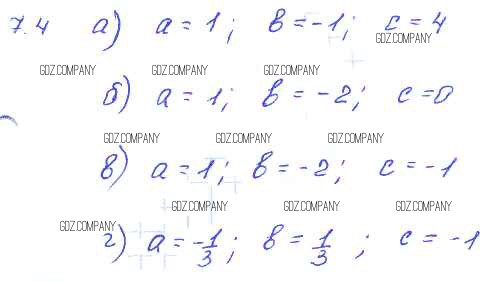 7.4 а) a = 1; b = -1; c = 4
GDZ.COMPANY
GDZ.COMPANY GDZ.COMPANY GDZ.COMPANY
б) a = 1; b = -2; c = 0
GDZ.COMPANY GDZ.COMPANY GDZ.COMPANY
в) a = 1; b = -2; c = -1
GDZ.COMPANY GDZ.COMPANY GDZ.COMPANY
GDZ.COMPANY
г) a = -1/3; b = 1/3; c = -1